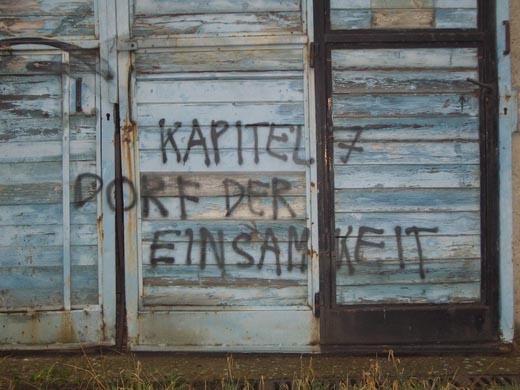 KAPITEL 7
DORF DER
EINSAMKEIT